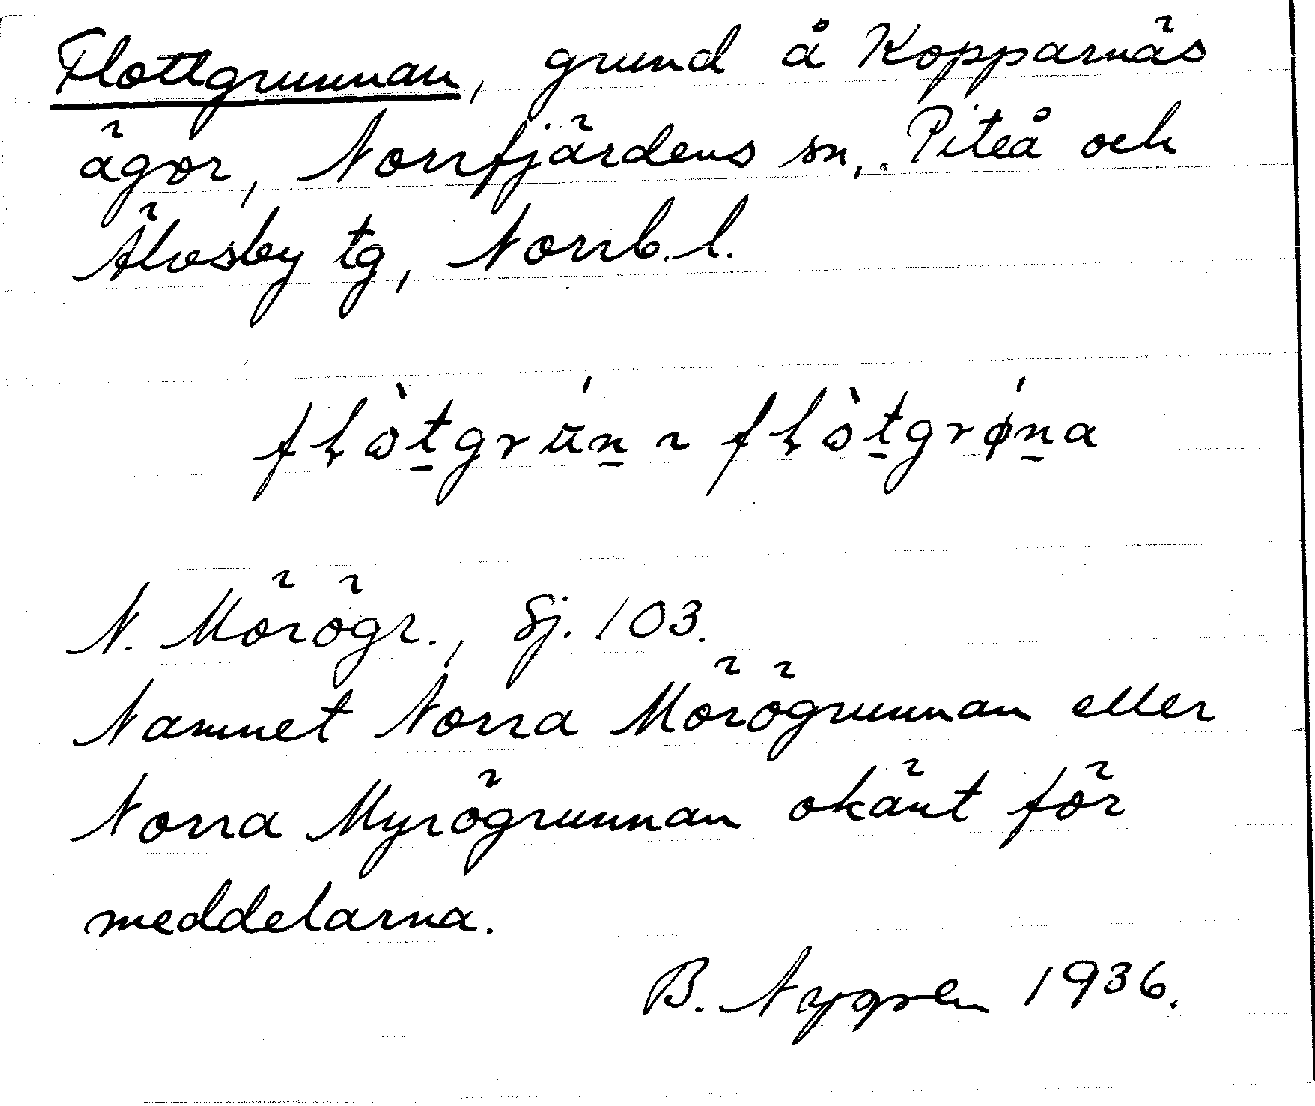 Flottgrunnan, grund å Kopparnäs
ägor, Norrfjärdens sn, Piteå och
Älvsby tg, Norrb. l.
flòt̠grún̠ ~ flòt̠grǿn̠a
N. Mörögr., Sj. 103.
Namnet Norra Mörögrunnan eller
Norra Myrögrunnan okänt för
meddelarna.
B. Nygren 1936.